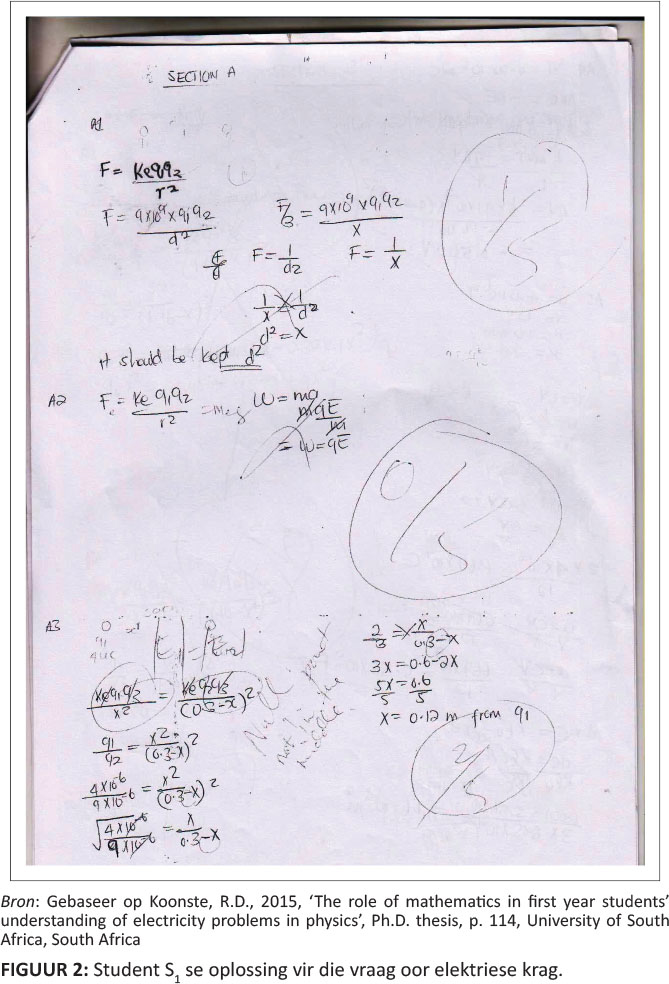 SECTION A
A1
F = Keq1q2 / r2
F = 9x10^9 x q1q2 / d2
F/3 = 9x10^9 x q1q2 / x
F = 1/d2
F = 1/x
1/x = 1/d2
d2 = x
it should be kept d2
1/5
A2
F = Ke q1q2 / r2
W = mg
mqE / m
= W = qE
0/5
A3
Keq1q / x2 = / (0.3-x)2
q1/q2 = x2 / (0.3-x)2
4x10-6 / 9x10-6 = x2 / (0.3-x)2
√(4x10-6 / 9x10-6) = x / 0.3-x
Null point
not in the
middle
2/3 = x / 0.3-x
3x = 0.6-2x
5x/5 = 0.6/5
x = 0.12 m from q1
2/5
Bron: Gebaseer op Koonste, R.D., 2015, ‘The role of mathematics in first year students’
understanding of electricity problems in physics’, Ph.D. thesis, p. 114, University of South
Africa, South Africa
FIGUUR 2: Student S1 se oplossing vir die vraag oor elektriese krag.